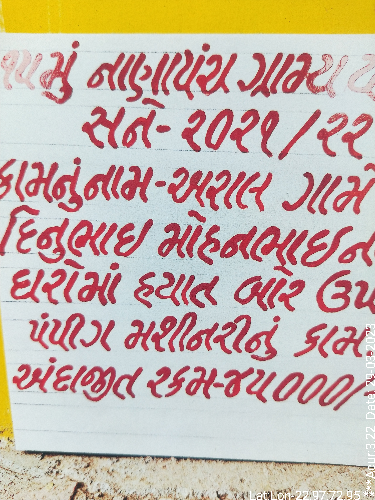 ૧૫મું નાણાપંચ ગ્રામ્ય
સને-૨૦૨૧/૨૨
કામનું નામ-અરાલ ગામે
દિનુભાઇ મોહનભાઇના
ઘરોમાં હયાત બોર ઉપ
પંપીગ મશીનરીનું કામ
અંદાજીત રકમ-૪૫૦૦૦/
Lat Lon-22.97,72.95